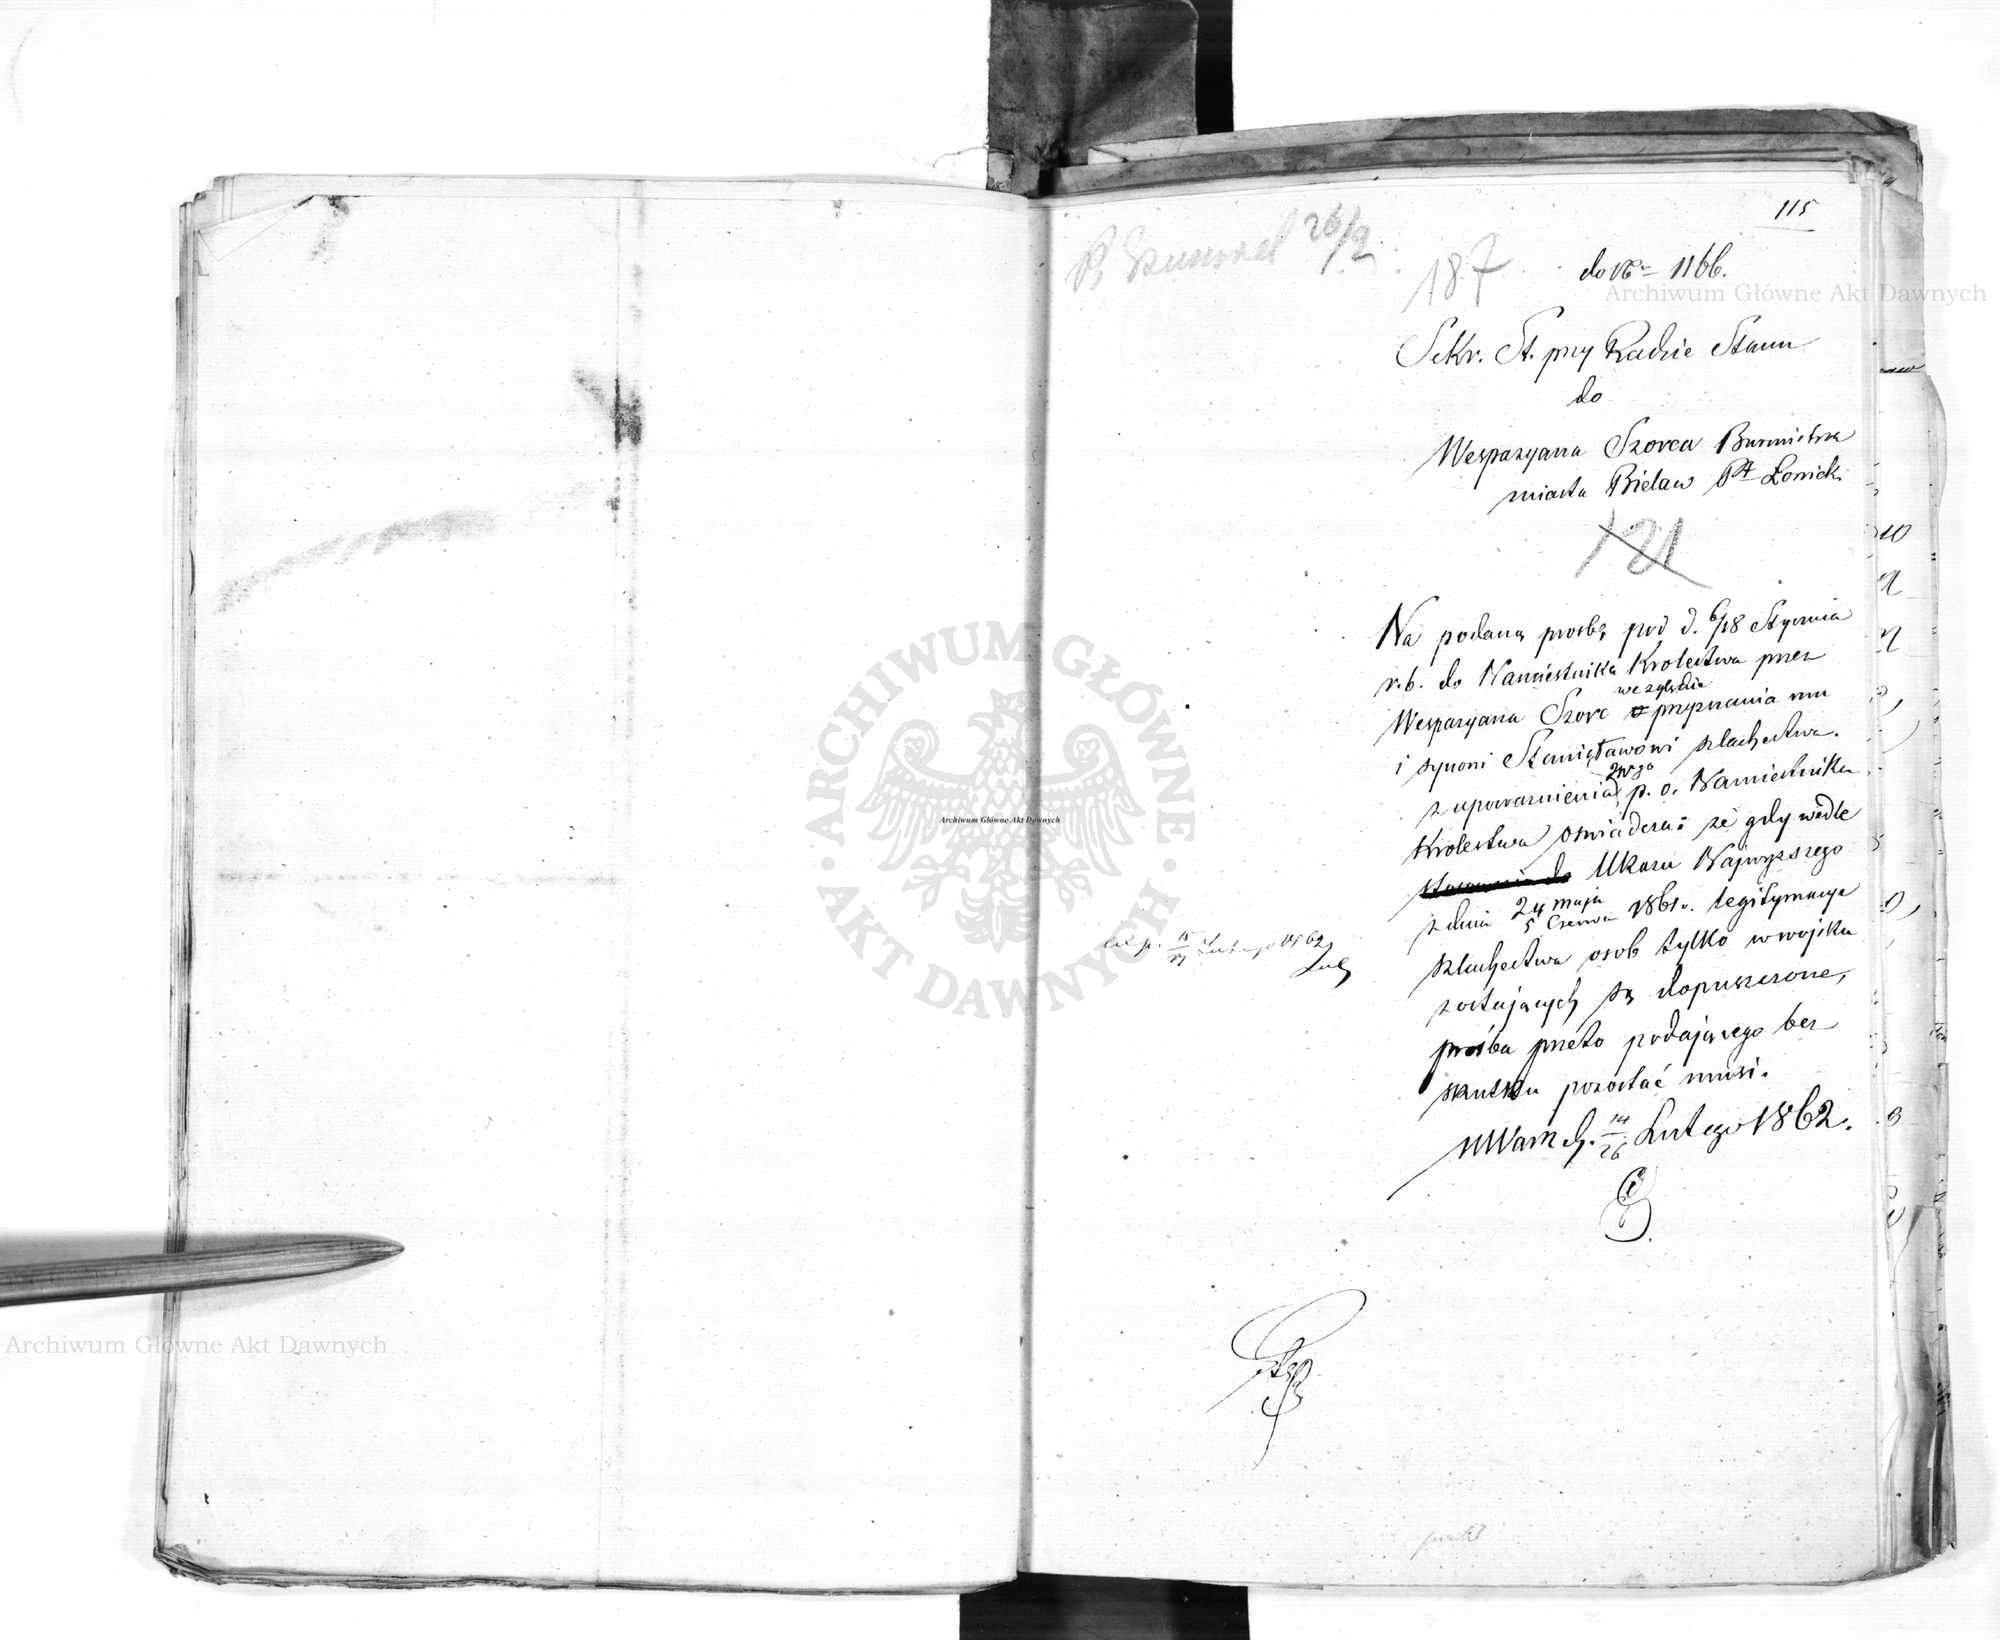 115
26/2
187
do Nr 1166.
Archiwum Główne Akt Dawnych
Sekr. St. przy Radzie Stanu
do
Wespazyana Szorca Burmistrza
miasta Bielaw Pt Łowick.
121
Na podaną prosbę pod d. 6/18 Stycznia
r. b. do Namiestnika Krolestwa przez
względnie
Wespazyana Szorc o przyznania mu
i synowi Stanisławowi szlachectwa.
z upoważnienia p. o. Namiestnika
Krolestwa oswiadcza: że gdy wedle
stosownie do Ukazu Najwyższego
z dnia 24 maja / 5 Czerwca 1861 r. legitymacye
szlachectwa osob tylko w wojsku
zostających są dopuszczone,
prośba przeto podającego bez
skutku pozostać musi.
w Warsz d. 14/26 Lutego 1862.
exp. 15/27 Lutego 1862
ARCHIWUM GŁÓWNE
AKT DAWNYCH
Archiwum Główne Akt Dawnych
Archiwum Główne Akt Dawnych